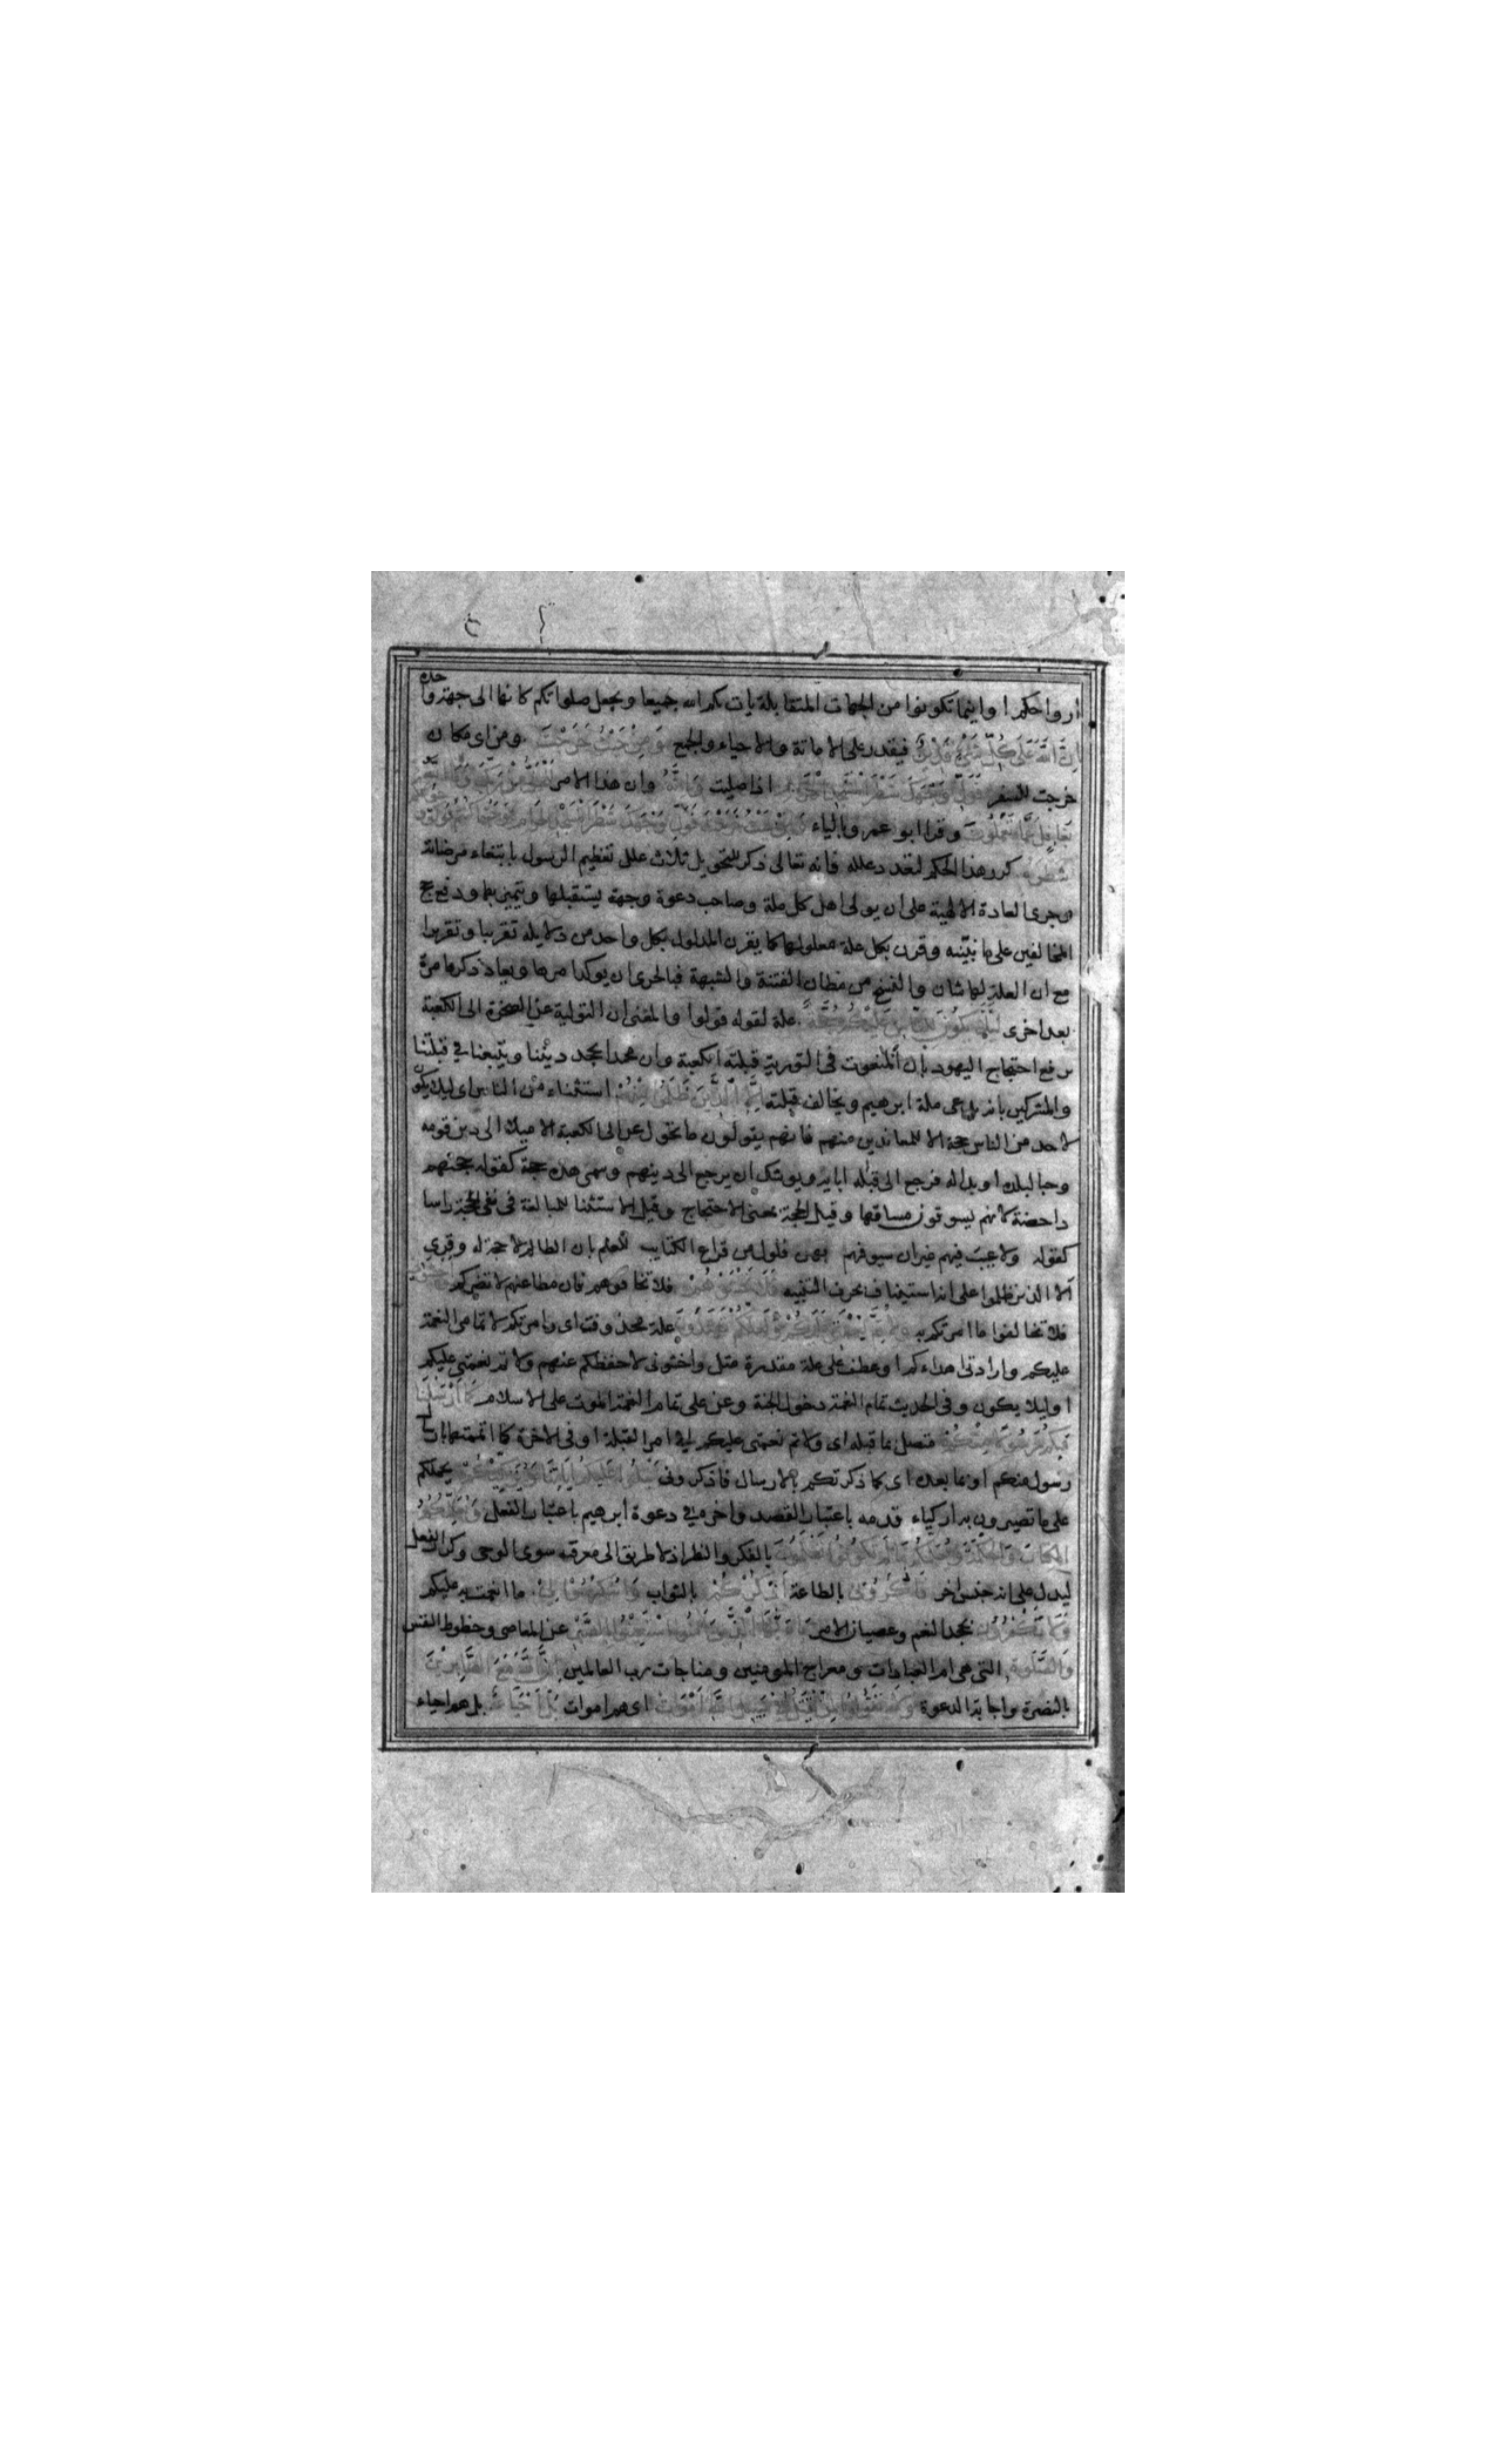 ارواحكم او اينما تكونوا من الجهات المتقابلة يات بكم الله جميعا ويجعل صلواتكم كانها الى جهة واحدة
إن الله على كل شيء قدير فيقدر على الاماتة والاحياء والجمع ومن حيث خرجت ومن اي مكان
خرجت للسفر فول وجهك شطر المسجد الحرام اذا صليت وإنه وان هذا الامر للحق من ربك وما الله
بغافل عما تعملون وقرا ابو عمرو بالياء ومن حيث خرجت فول وجهك شطر المسجد الحرام وحيثما كنتم فولوا وجوهكم
شطره كرر هذا الحكم لتعدد علله فانه تعالى ذكر للتحويل ثلاث علل تعظيم الرسول بابتغاء مرضاته
وجرى العادة الالهية على ان يولى اهل كل ملة وصاحب دعوة وجهة يستقبلها ويتميز بها ودفع حجج
المخالفين على ما نبينه وقرن بكل علة معلولها كما يقرن المدلول بكل واحد من دلايله تقريبا وتقريرا
مع ان العلة لها شان والنسخ من مظان الفتنة والشبهة فبالحرى ان يوكد امرها ويعاد ذكرها مرة
بعد اخرى لئلا يكون للناس عليكم حجة علة لقوله فولوا والمعنى ان التولية عن الصخرة الى الكعبة
يرفع احتجاج اليهود بان المنعوت في التورية قبلته الكعبة وان محمدا يجحد ديننا ويتبعنا في قبلتنا
والمشركين بانه يدعى ملة ابرهيم ويخالف قبلته إلا الذين ظلموا منهم استثناء من الناس اي ليلا يكون
لاحد من الناس حجة الا للمعاندين منهم فانهم يقولون ما تحول عن الى الكعبة الا ميلا الى دين قومه
وحبا لبلده او بدا له فرجع الى قبلة ابايه ويوشك ان يرجع الى دينهم وسمى هذه حجة كقوله حجتهم
داحضة لانهم يسوقون مساقها وقيل الحجة بمعنى الاحتجاج وقيل الاستثنا للمبالغة في نفى الحجة راسا
كقوله ولا عيب فيهم غير ان سيوفهم بهن فلول من قراع الكتايب للعلم بان الظالم لا حجة له وقرى
الا الذين ظلموا على انه استيناف بحرف التنبيه فلا تخشوهم فلا تخافوهم فان مطاعنهم لا تضركم واخشوني
فلا تخالفوا ما امرتكم به ولأتم نعمتي عليكم ولعلكم تهتدون علة محذوف اي وامرتكم لاتمامى النعمة
عليكم وارادتى اهتداءكم او عطف على علة مقدرة مثل واخشونى لاحفظكم عنهم ولاتم نعمتى عليكم
او ليلا يكون وفي الحديث تمام النعمة دخول الجنة وعن على تمام النعمة الموت على الاسلام كما أرسلنا
فيكم رسولا منكم متصل بما قبله اي ولاتم نعمتى عليكم في امر القبلة او في الاخرة كما اتممتها بارسال
رسول منكم او بما بعده اي كما ذكرتكم بالارسال فاذكرونى يتلوا عليكم آياتنا ويزكيكم يحملكم
على ما تصيرون به ازكياء قدمه باعتبار القصد واخره في دعوة ابرهيم باعتبار الفعل ويعلمكم
الكتاب والحكمة ويعلمكم ما لم تكونوا تعلمون بالفكر والنظر اذ لا طريق الى معرفته سوى الوحى وكرر الفعل
ليدل على انه جنس اخر فاذكروني بالطاعة أذكركم بالثواب واشكروا لي ما انعمت به عليكم
ولا تكفرون بجحد النعم وعصيان الامر يا أيها الذين آمنوا استعينوا بالصبر عن المعاصى وحظوظ النفس
والصلوة التي هي ام العبادات ومعراج المومنين ومناجات رب العالمين إن الله مع الصابرين
بالنصرة واجابة الدعوة ولا تقولوا لمن يقتل في سبيل الله أموات اي هم اموات بل أحياء بل هم احياء